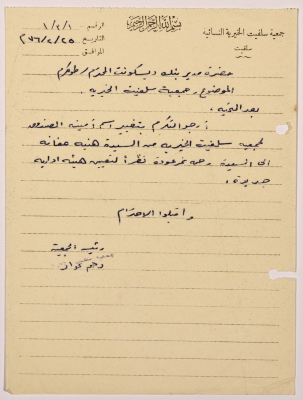 بسم الله الرحمن الرحيم
جمعية سلفيت الخيرية النسائية
سلفيت
الرقم ١/٢/١
التاريخ ٧٦/٢/٢٥
الموافق
حضرة مدير بنك ديسكونت المحترم / طولكرم
الموضوع / جمعية سلفيت الخيرية
بعد التحية،
أرجو التكرم بتغيير اسم أمينة الصندوق
لجمعية سلفيت الخيرية من السيدة هنية عفانة
الى السيدة نظراً لتعيين هيئة ادارية
جديدة.
واقبلوا الاحترام
رئيسة الجمعية